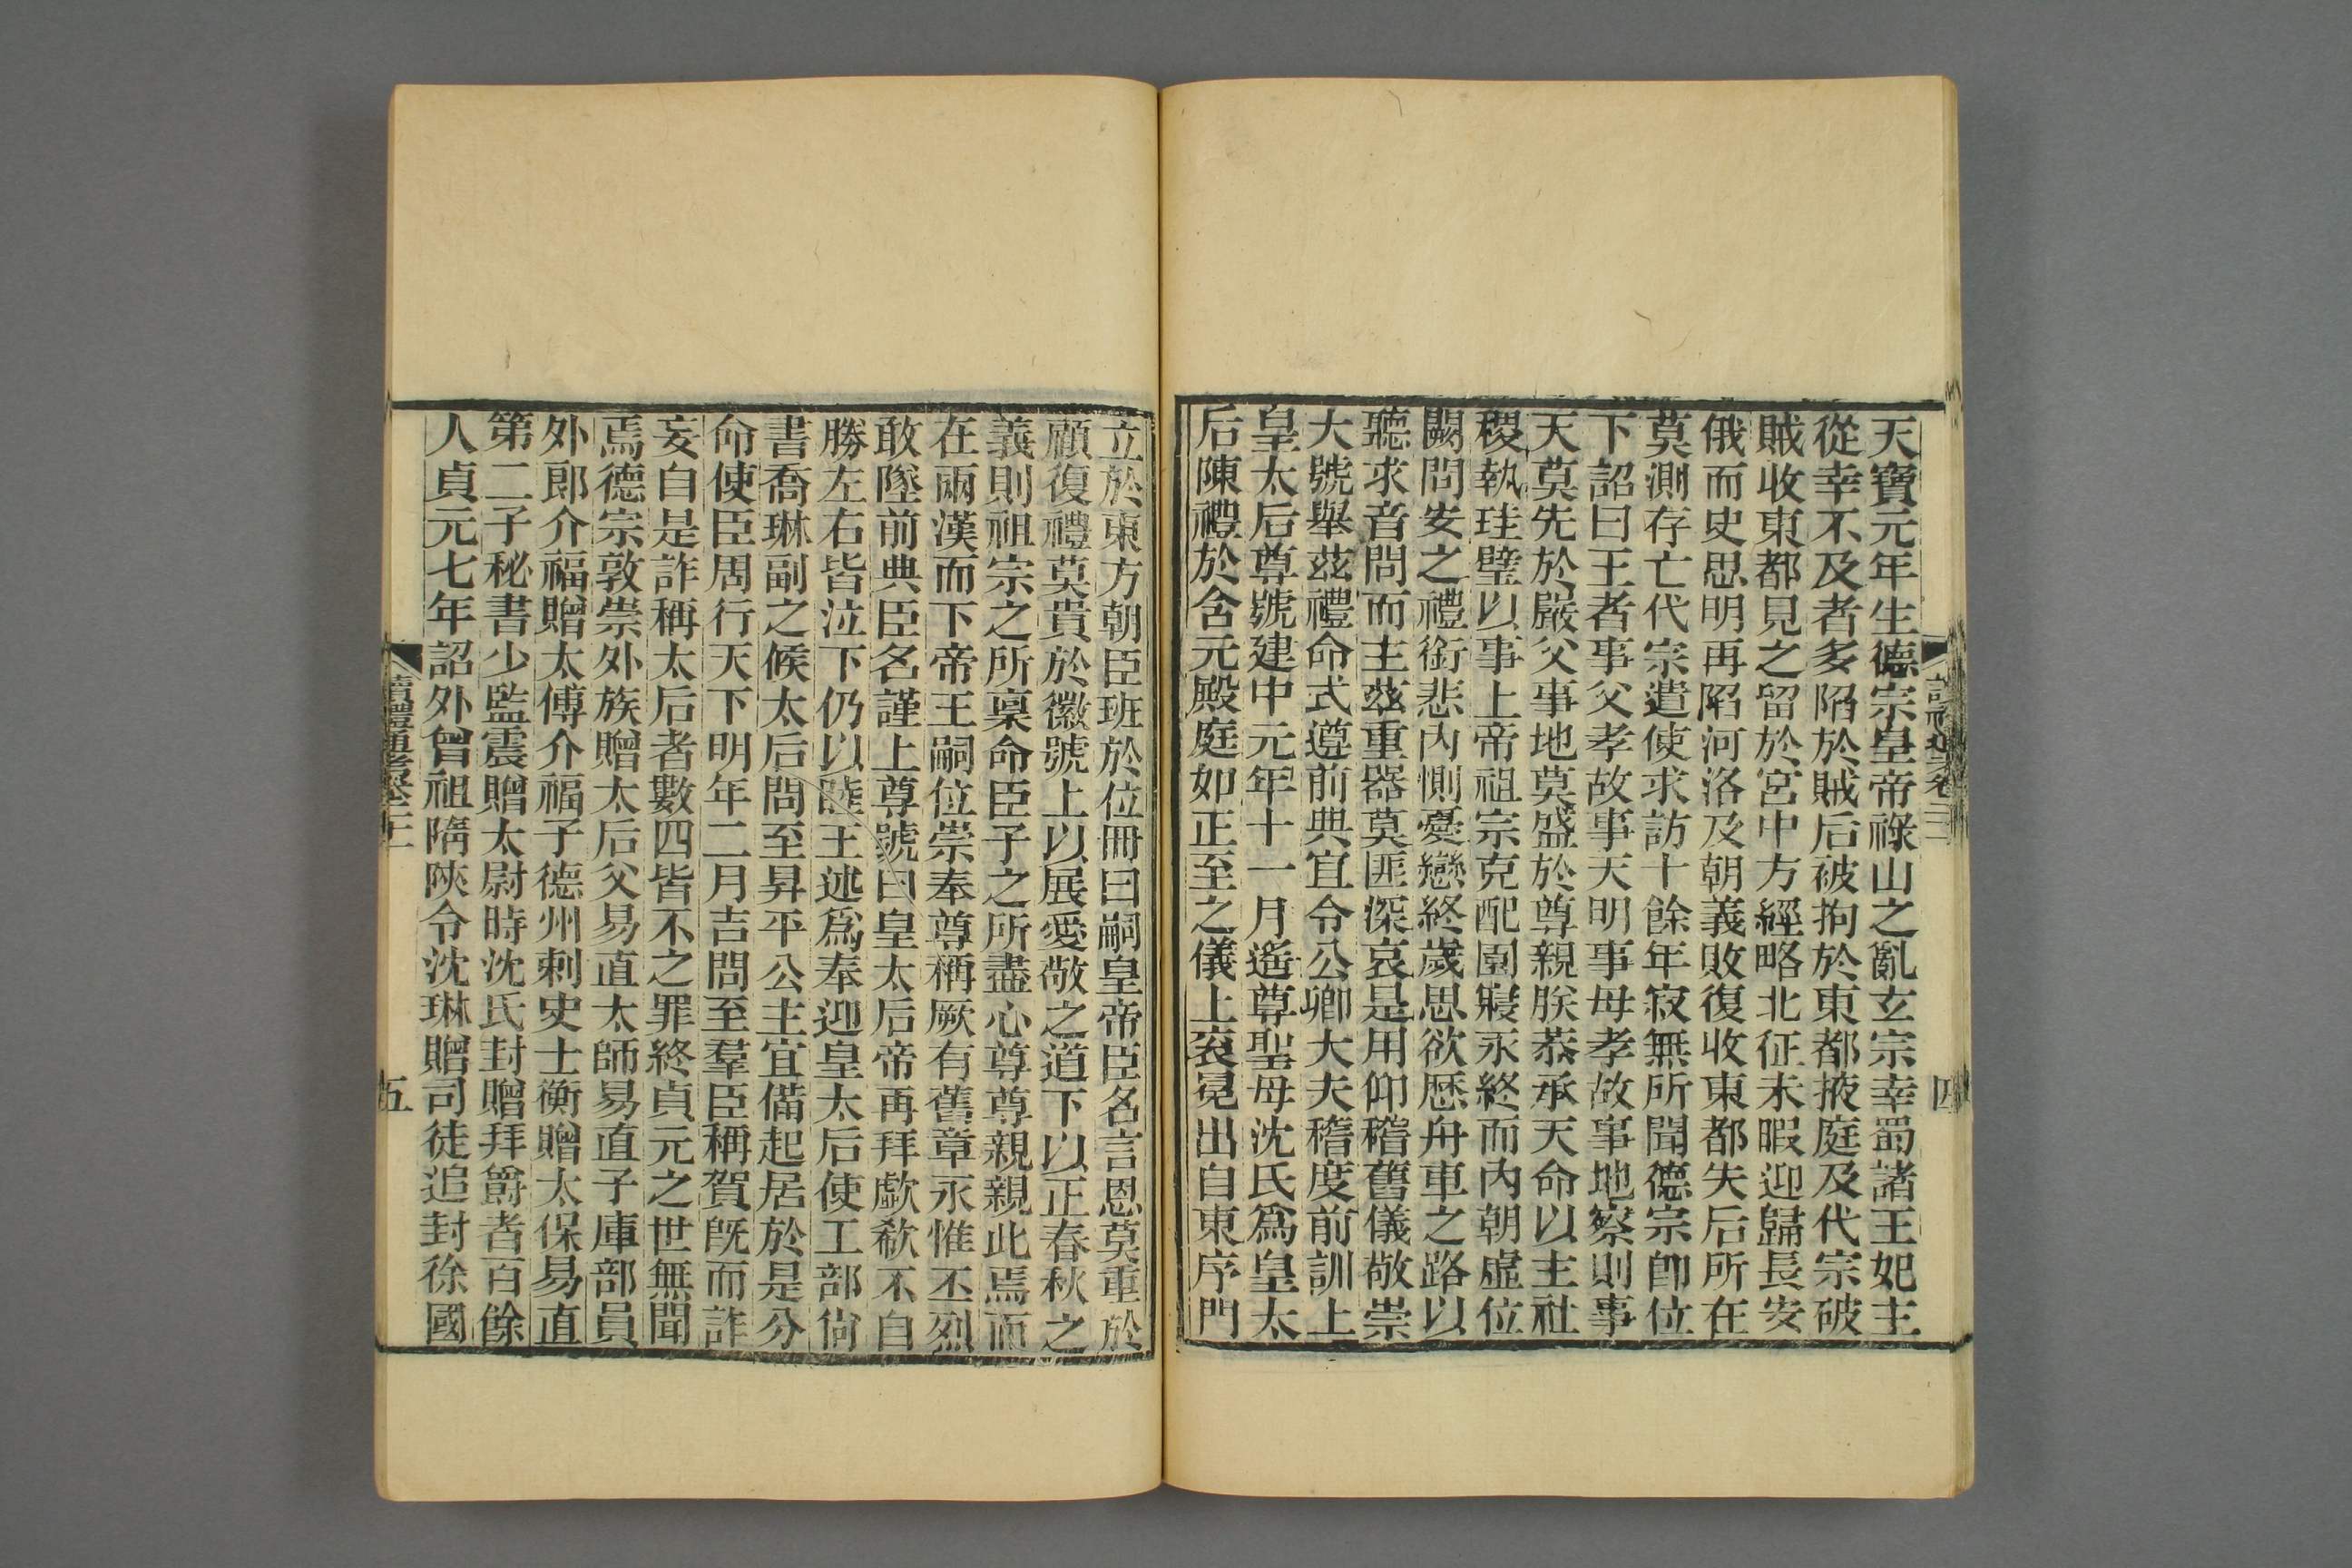 天寶元年生德宗皇帝祿山之亂玄宗幸蜀諸王妃主
從幸不及者多陷於賊后被拘於東都掖庭及代宗破
賊收東都見之留於宮中方經略北征未暇迎歸長安
俄而史思明再陷河洛及朝義敗復收東都失后所在
莫測存亡代宗遣使求訪十餘年寂無所聞德宗卽位
下詔曰王者事父孝故事天明事母孝故事地察則事
天莫先於嚴父事地莫盛於尊親朕恭承天命以主社
稷執珪璧以事上帝祖宗克配園寢永終而內朝虛位
闕問安之禮銜悲內惻憂戀終歲思欲歷舟車之路以
聽求音問而主茲重器莫匪深哀是用仰稽舊儀敬崇
大號舉茲禮命式遵前典宜令公卿大夫稽度前訓上
皇太后尊號建中元年十一月遙尊聖母沈氏爲皇太
后陳禮於含元殿庭如正至之儀上袞冕出自東序門
立於東方朝臣班於位冊曰嗣皇帝臣名言恩莫重於
顧復禮莫貴於徽號上以展愛敬之道下以正春秋之
義則祖宗之所稟命臣子之所盡心尊尊親親此焉而
在兩漢而下帝王嗣位崇奉尊稱厥有舊章永惟丕烈
敢墜前典臣名謹上尊號曰皇太后帝再拜歔欷不自
勝左右皆泣下仍以睦王述爲奉迎皇太后使工部尙
書喬琳副之候太后問至昇平公主宜備起居於是分
命使臣周行天下明年二月吉問至羣臣稱賀旣而詐
妄自是詐稱太后者數四皆不之罪終貞元之世無聞
焉德宗敦崇外族贈太后父易直太師易直子庫部員
外郞介福贈太傅介福子德州刺史士衡贈太保易直
第二子秘書少監震贈太尉時沈氏封贈拜爵者百餘
人貞元七年詔外曾祖隋陝令沈琳贈司徒追封徐國
讀禮通考卷三
五